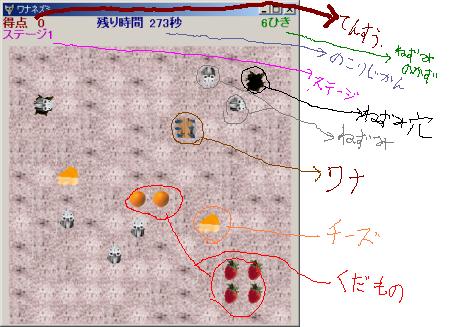 ワナネズミ
得点 0 残り時間 273秒 6ひき
ステージ1
てんすう
ねずみのかず
のこりじかん
ステージ
ねずみ穴
ねずみ
ワナ
チーズ
くだもの